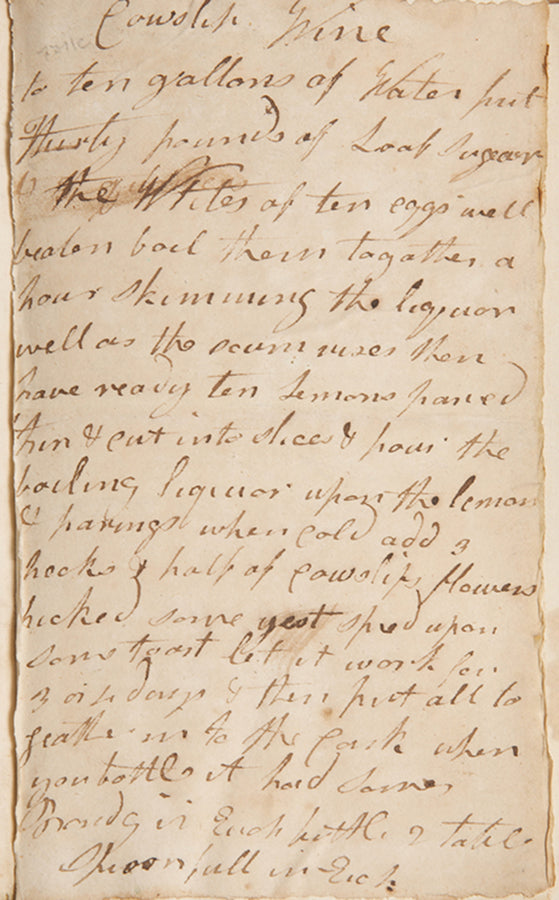 Cowslip Wine
to ten gallons of Water put
thirty pounds of Loaf Sugear
& the Whites of ten eggs well
beaten boil them togather a
hour skimming the liquor
well as the scum rises then
have ready ten Lemons pared
thin & cut into slices & pour the
boiling liquor upon the lemon
& parings when cold add 3
& half of Cowslips flowers
picked some yest spred upon
some toast let it work for
3 or 4 days & then put all to
geather in to the cask when
you bottle it had some
Brandy in Each bottle 2 table
spoon full in Each